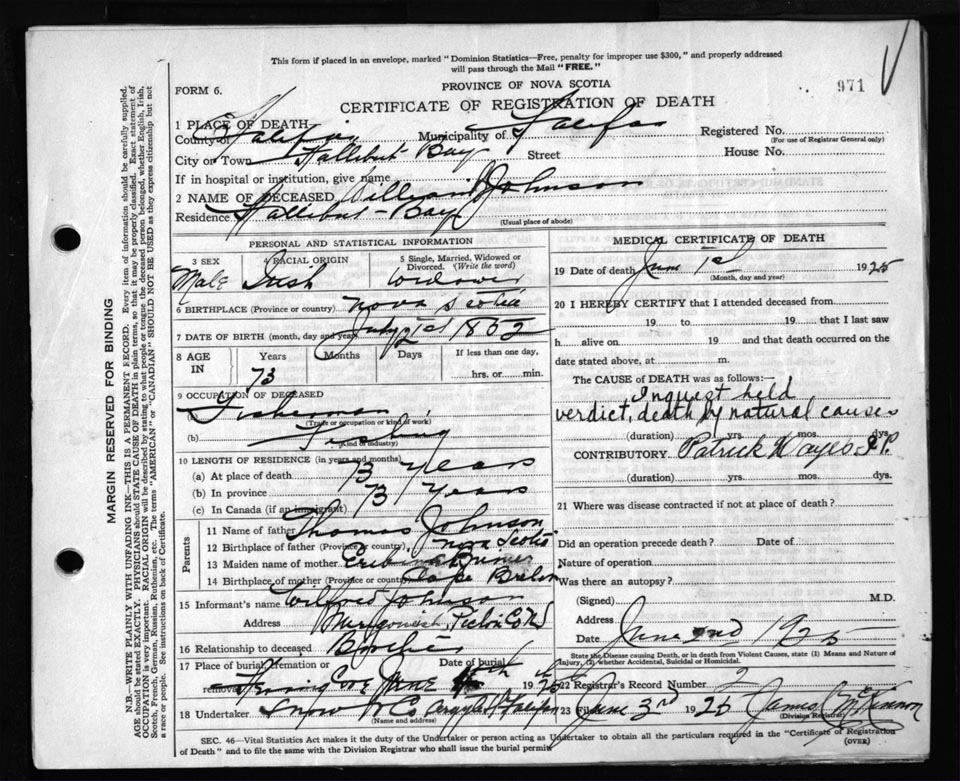 This form if placed in an envelope, marked "Dominion Statistics—Free, penalty for improper use $300," and properly addressed
will pass through the Mail "FREE."
971
FORM 6.
PROVINCE OF NOVA SCOTIA
CERTIFICATE OF REGISTRATION OF DEATH
1 PLACE OF DEATH
County of Halifax Municipality of Halifax Registered No.
(For use of Registrar General only)
City or Town Hallibut Bay Street House No.
If in hospital or institution, give name
2 NAME OF DECEASED William Johnson
Residence Hallibut-Bay
(Usual place of abode)
PERSONAL AND STATISTICAL INFORMATION
3 SEX 4 RACIAL ORIGIN 5 Single, Married, Widowed or Divorced. (Write the word)
Male Irish widower
6 BIRTHPLACE (Province or country) Nova Scotia
7 DATE OF BIRTH (month, day and year) July 1852
8 AGE IN Years Months Days If less than one day,
73 hrs. or min.
9 OCCUPATION OF DECEASED
(a) Fisherman
(Trade or occupation or kind of work)
(b) Fishing
(Kind of industry)
10 LENGTH OF RESIDENCE (in years and months)
(a) At place of death 73 years
(b) In province 73 years
(c) In Canada (if an immigrant)
Parents
11 Name of father Thomas Johnson
12 Birthplace of father (Province or country) Nova Scotia
13 Maiden name of mother
14 Birthplace of mother (Province or country) Cape Breton
15 Informant's name Wilfred Johnson
Address Merigomish, Pictou Co NS
16 Relationship to deceased Brother
17 Place of burial, cremation or removal Date of burial
Herring Cove June 1925
18 Undertaker Snow & Co Argyle St Halifax
(Name and address)
MEDICAL CERTIFICATE OF DEATH
19 Date of death June 1st 1925
(Month, day and year)
20 I HEREBY CERTIFY that I attended deceased from
19 to 19 that I last saw
h alive on 19 and that death occurred on the
date stated above, at m.
The CAUSE of DEATH was as follows:
Inquest held
verdict, death by natural causes
(duration) yrs. mos. dys.
CONTRIBUTORY Patrick Hayes J.P.
(duration) yrs. mos. dys.
21 Where was disease contracted if not at place of death?
Did an operation precede death? Date of
Nature of operation
Was there an autopsy?
(Signed) M.D.
Address
Date June 2nd 1925
State the Disease causing Death, or in death from Violent Causes, state (1) Means and Nature of
Injury, (2) whether Accidental, Suicidal or Homicidal.
22 Registrar's Record Number 2
23 Filed June 3rd 1925 James McKinnon
(Division Registrar)
(OVER)
SEC. 46—Vital Statistics Act makes it the duty of the Undertaker or person acting as Undertaker to obtain all the particulars required in the "Certificate of Registration
of Death" and to file the same with the Division Registrar who shall issue the burial permit
MARGIN RESERVED FOR BINDING
N.B.—WRITE PLAINLY WITH UNFADING INK—THIS IS A PERMANENT RECORD. Every item of information should be carefully supplied.
AGE should be stated EXACTLY. PHYSICIANS should STATE CAUSE OF DEATH in plain terms, so that it may be properly classified. Exact statement of
OCCUPATION is very important. RACIAL ORIGIN will be described by stating to what people or tongue the deceased person belonged, whether English, Irish,
Scotch, French, German, Russian, Ruthenian, etc. The terms "AMERICAN" or "CANADIAN" SHOULD NOT BE USED as they express citizenship but not
a race or people. See instructions on back of Certificate.